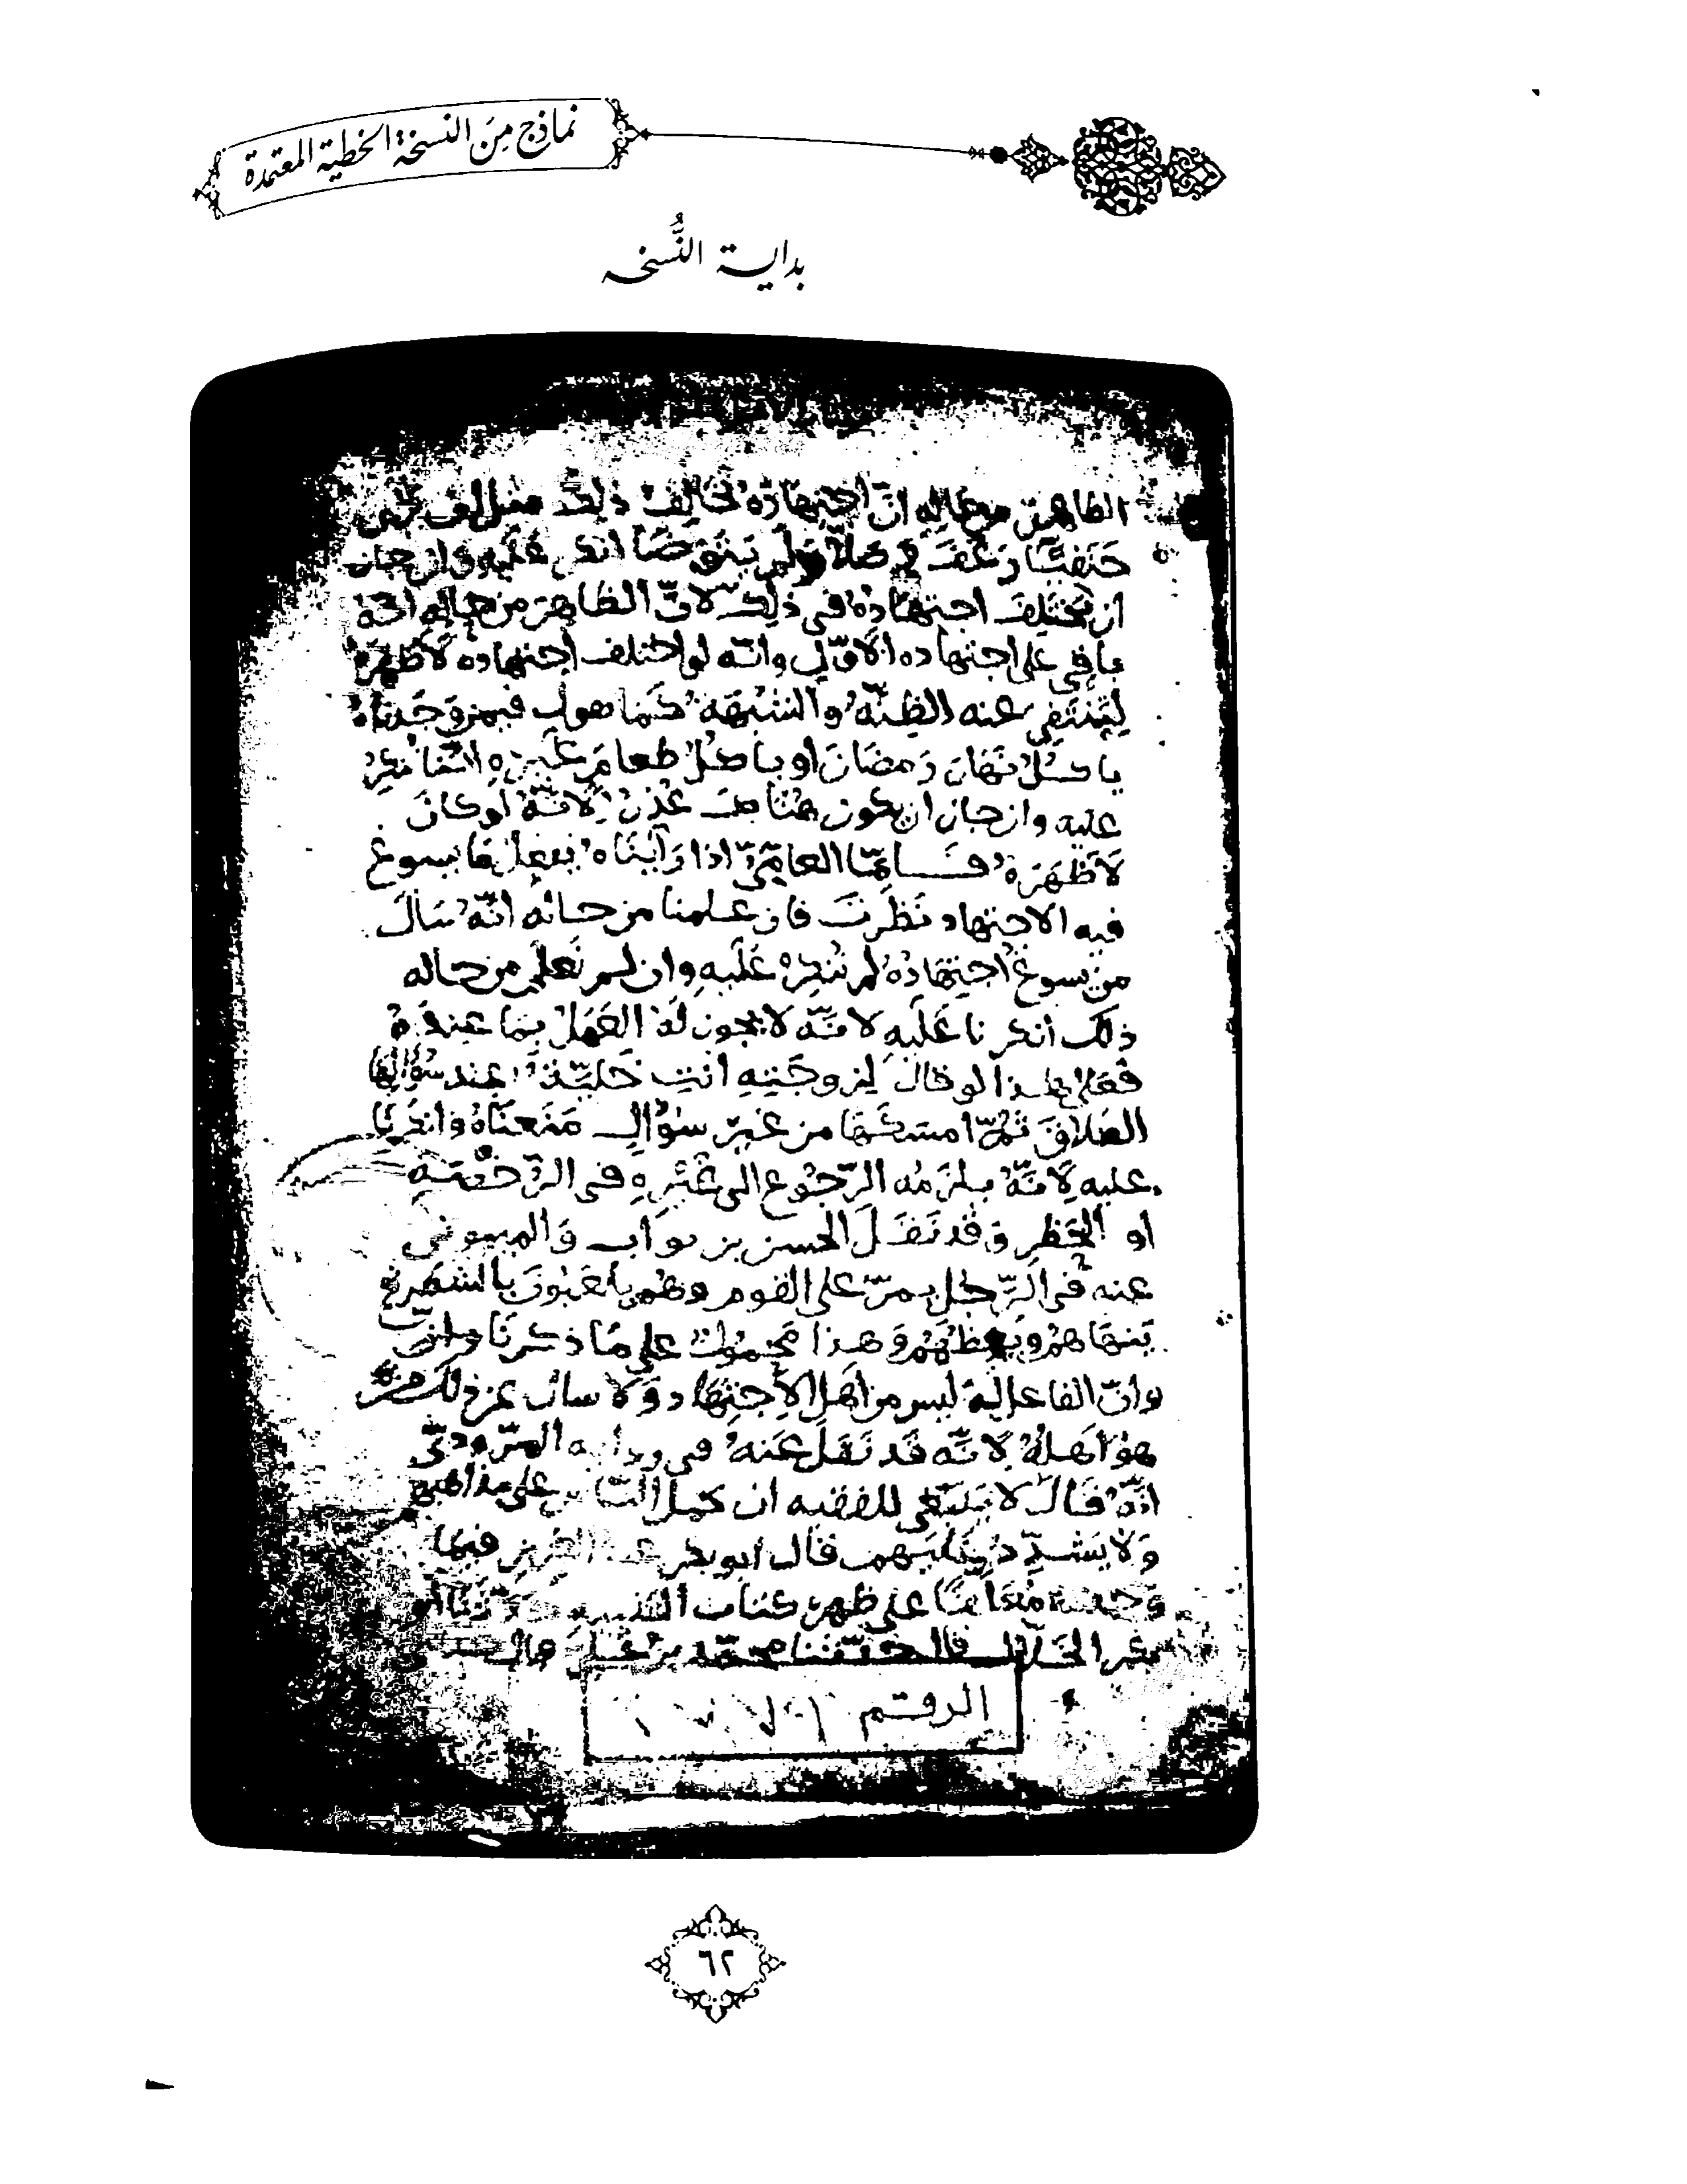 نماذج مِنَ النسخة الخطية المعتمدة
بداية النُّسخة
الظاهر من حاله انّ اجتهاده تخالف ذلك مثل ان يرى
حَنَفيًّا رَعَفَ في صلاة ولم يتوضّأ انكر عليه وان جاز
ان يختلف اجتهاده في ذلك لانّ الظاهر من حاله انه
باقٍ على اجتهاده الاوّل وانّه لو اختلف اجتهاده لأظهَرَهُ
لِيَنتَفِي عنه الظِنّهُ والشبْهَة كما نقول فيمن وَجَدناهُ
ياكلُ نَهَارَ رَمضَانَ أو ياكلُ طعام غيره انّنا ننكر
عليه وان جاز ان يكون هناك عُذرٌ لِانّهُ لو كانَ
لأظهَرَهُ فـامّا العامّيّ اذا رَأينَاهُ يفعل ما يسوغ
فيه الاجتهاد نَظَرْتَ فان علمنا من حاله انّه سَأل
من يسوغ اجتِهَادُهُ لم نُنكِرْهُ عَلَيهِ وان لم نَعلم من حاله
ذلك أنكرنا عَلَيهِ لانّه لا يجوز لَهُ العَمَلُ بمَا عِندَهُ
فعَلى هذا لو قال لِزوجَتِهِ أنتِ خَليّةٌ عند سُؤالِهَا
الطَلاقَ ثمّ امسَكهَا من غيرِ سُؤالٍ مَنَعنَاهُ وانكرنَا
عليه لِأنّهُ يلزمُه الرّجُوع الى غَيْرِهِ في الرّخصَةِ
أو الحَظرِ وَقد نَقَلَ الحسن بن ثواب وَالميموني
عنه في الرّجُل يمرّ على القوم وهُم يلعَبُونَ بالشطرنج
يَنهَاهُم وَيعِظُهُم وَهذا مَحمولٌ على مَا ذكرنَا وان
وانّ الفاعل له ليس من أهل الاجتِهَاد وَلا سأل عن ذلك من
هُوَ اهلهُ لِانّه قَد نَقَلَ عَنهُ في رواية المرّوذيّ
انّهُ قَالَ لا يَنبَغي للفقيه ان يحمل النّاس على مذاهبهم
وَلا يشدِّدُ عَليهم قال ابو بكر عبد العزيز فيما
وَجدته مُعَلّقًا على ظهر كتاب التنبيه حدّثَنَا أبو
بكر الخَلّال قال حدّثنا محمّد بن
الرقم
٦٢